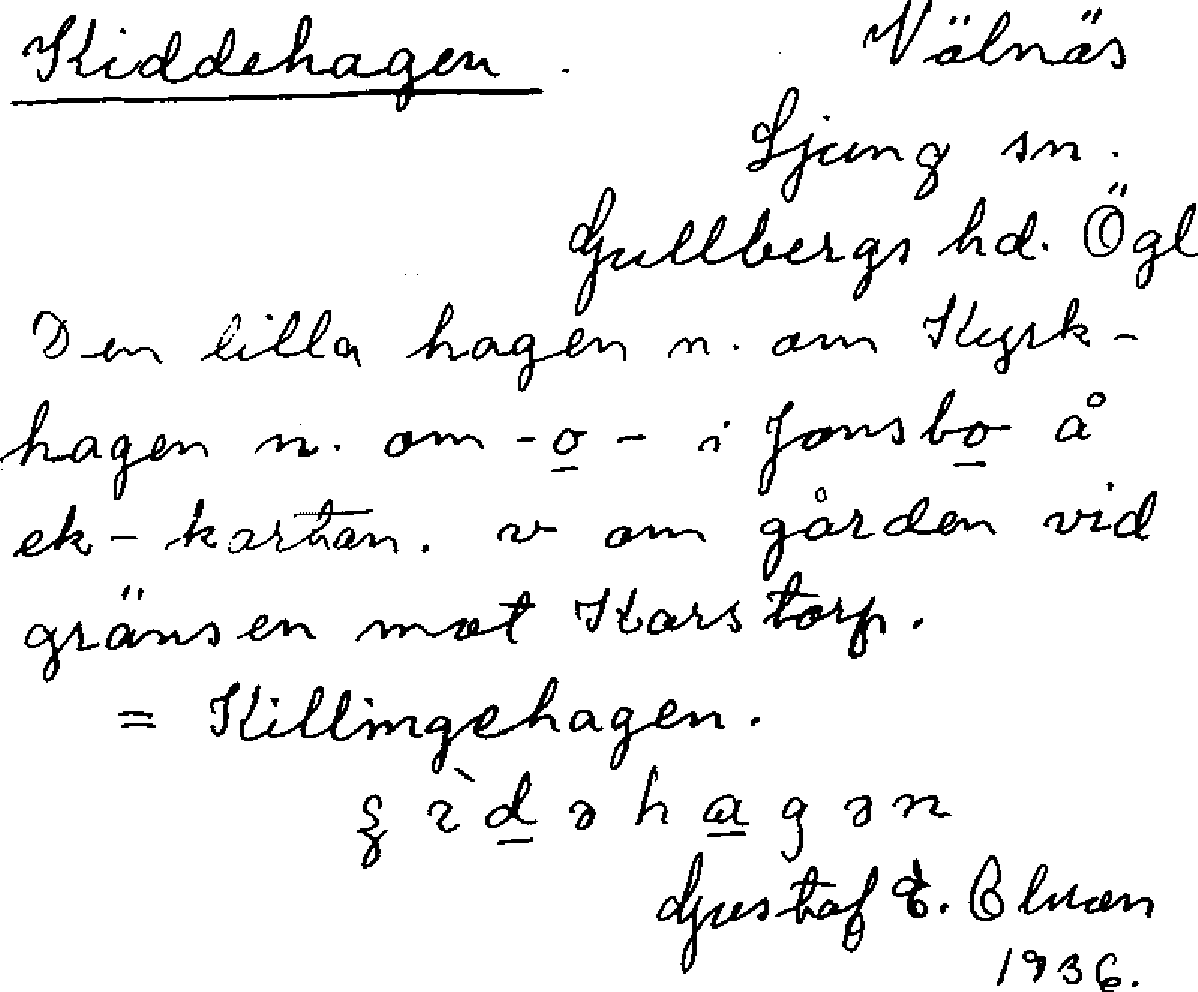 Kiddehagen. Välnäs
Ljung sn.
Gullbergs hd. Ögl
Den lilla hagen n. om Kyrk-
hagen n. om -o- i Jonsbo å
ek-kartan. v om gården vid
gränsen mot Karstorp.
= Killingehagen.
Gustaf E.
1936.